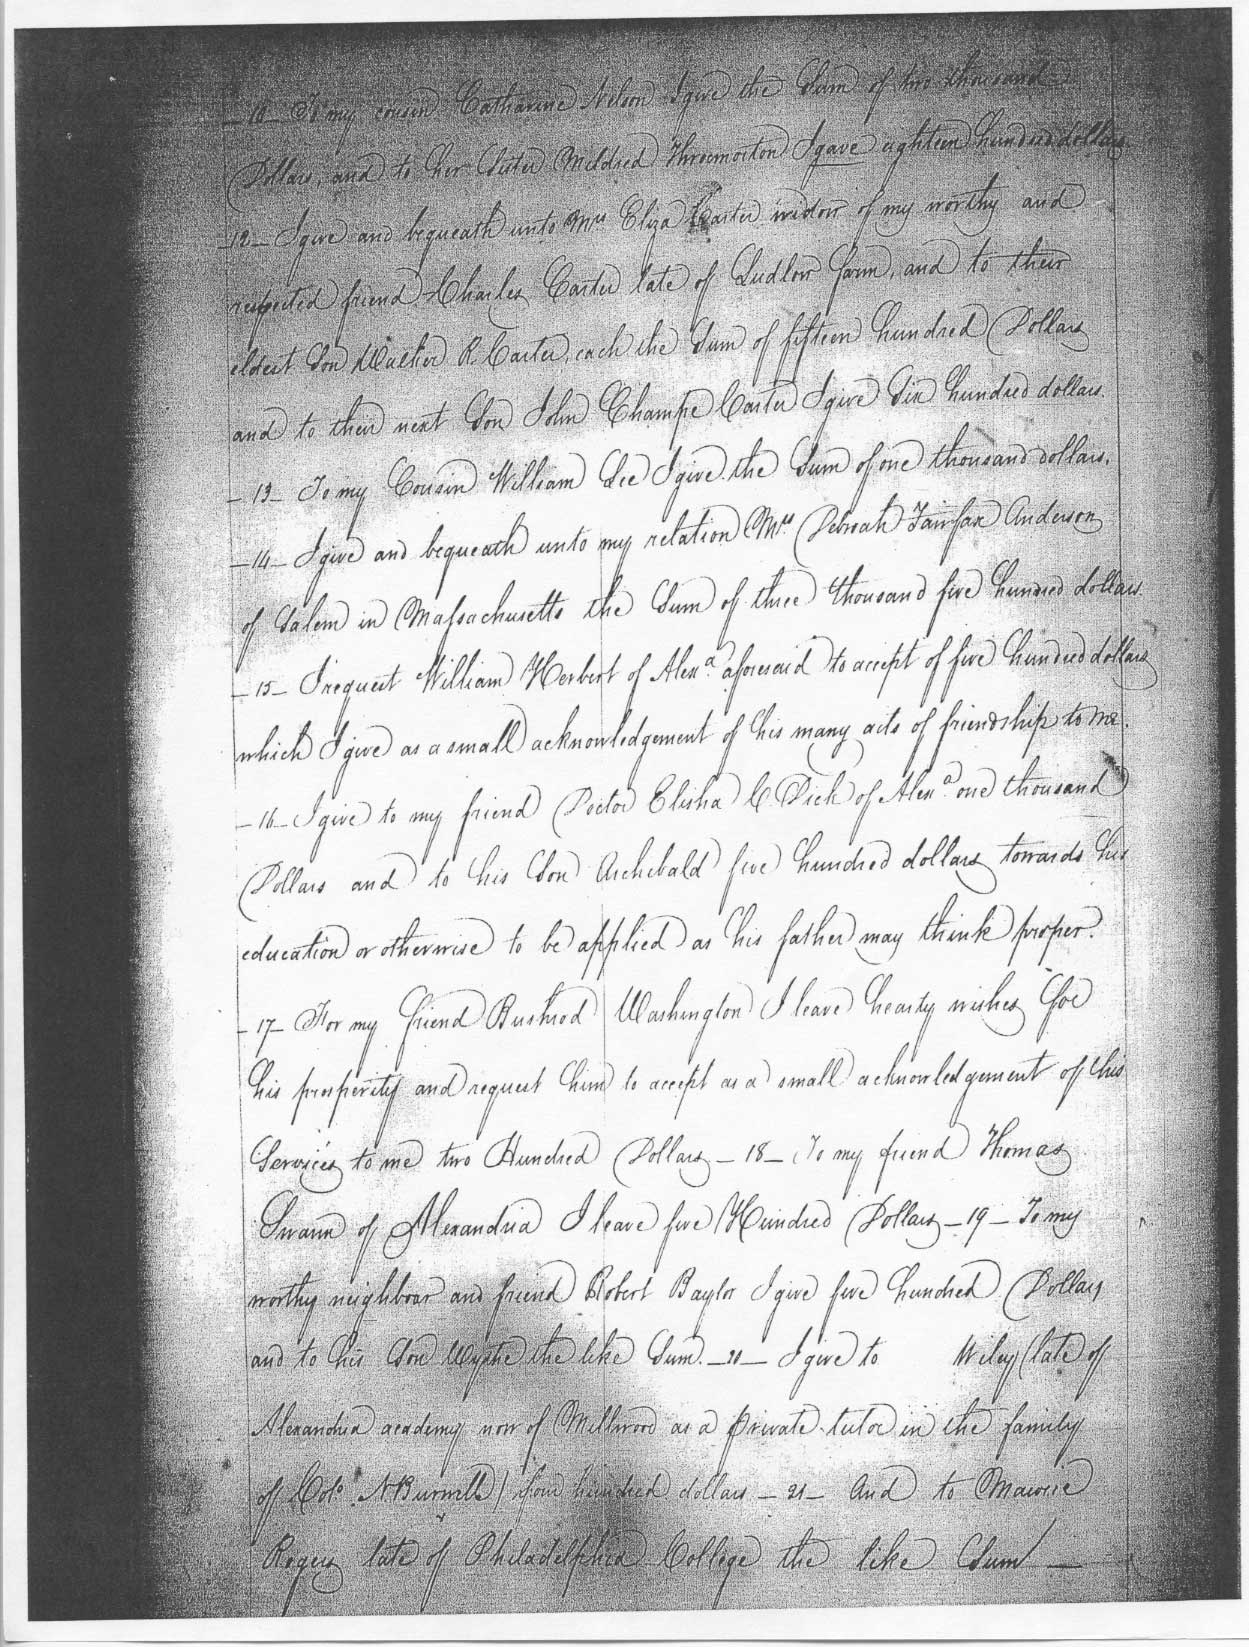 – 10 – To my cousin Catharine Nelson I give the Sum of two thousand
Dollars, and to her Sister Mildred Throcmorton I gave eighteen hundred dollars
– 12 – I give and bequeath unto Mrs Eliza Carter widow of my worthy and
respected friend Charles Carter late of Ludlow farm, and to their
eldest Son Walker R. Carter, each the Sum of fifteen hundred Dollars
and to their next Son John Champe Carter I give Six hundred dollars.
– 13 – To my Cousin William Lee I give the Sum of one thousand dollars.
– 14 – I give and bequeath unto my relation Mrs Debroah Fairfax Anderson
of Salem in Massachusetts the Sum of three thousand five hundred dollars.
– 15 – I request William Herbert of Alexa. aforesaid to accept of five hundred dollars
which I give as a small acknowledgement of his many acts of friendship to me.
– 16 – I give to my friend Doctor Elisha C. Dick of Alexa. one thousand
Dollars and to his Son Archibald five hundred dollars towards his
education or otherwise to be applied as his father may think proper.
– 17 – For my friend Bushrod Washington I leave hearty wishes for
his prosperity and request him to accept as a small acknowledgement of his
Services to me two Hundred Dollars – 18 – To my friend Thomas
Swann of Alexandria I leave five Hundred Dollars – 19 – To my
worthy neighbour and friend Robert Baylor I give five hundred Dollars
and to his Son Wythe the like Sum. – 20 – I give to Wiley (late of
Alexandria academy now of Millwood as a private tutor in the family
of Colo. N Burwell) four hundred dollars – 21 – And to
Rogers late of Philadelphia College the like Sum –